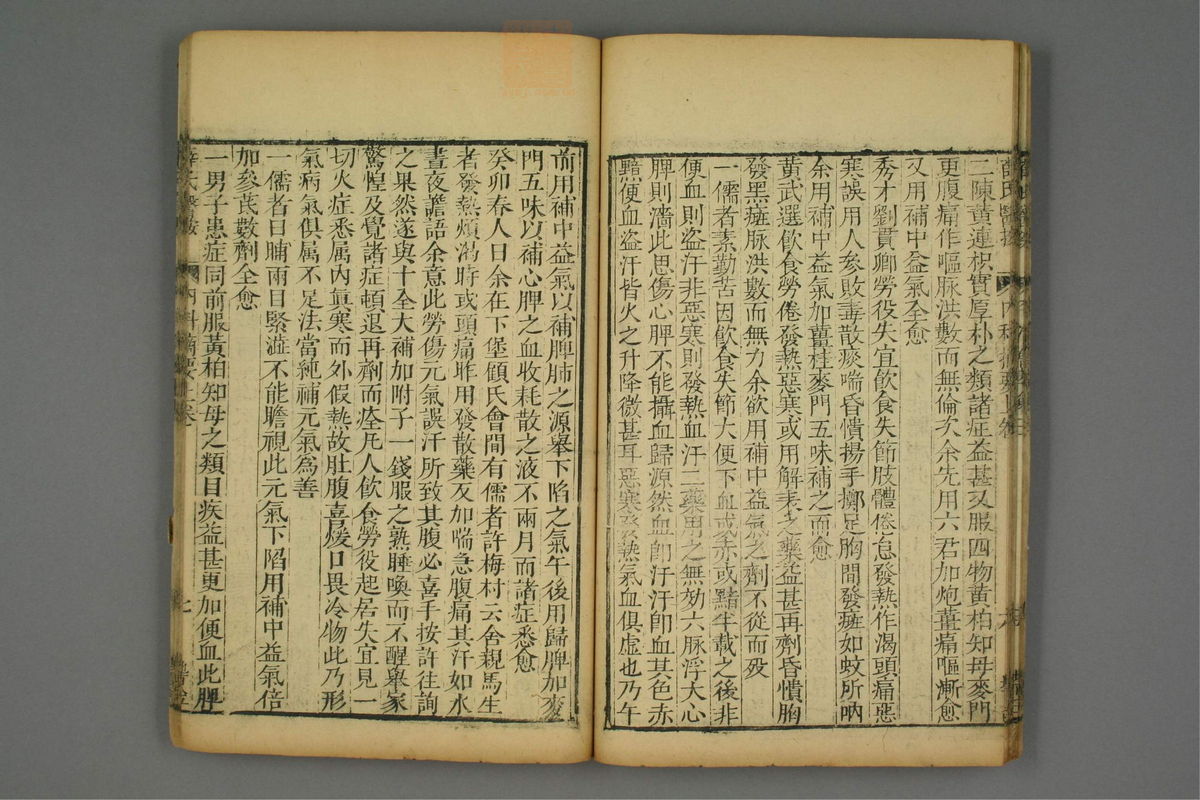 二陳黃連枳實厚朴之類諸症益甚又服四物黃柏知母麥門
更腹痛作嘔脉洪數而無倫次余先用六君加炮薑痛嘔漸愈
又用補中益氣全愈
秀才劉貫卿勞役失宜飲食失節肢體倦怠發熱作渴頭痛惡
寒誤用人參敗毒散痰喘昏憒揚手擲足胸間發癍如蚊所吶
余用補中益氣加薑桂麥門五味補之而愈
黃武選飲食勞倦發熱惡寒或用解表之藥益甚再劑昏憒胸
發黑癍脉洪數而無力余欲用補中益氣之劑不從而歿
一儒者素勤苦因飲食失節大便下血或赤或黯半載之後非
便血則盜汗非惡寒則發熱血汗二藥用之無効六脉浮大心
脾則濇此思傷心脾不能攝血歸源然血卽汗汗卽血其色赤
黯便血盜汗皆火之升降微甚耳惡寒發熱氣血俱虛也乃午
前用補中益氣以補脾肺之源舉下陷之氣午後用歸脾加麥
門五味以補心脾之血收耗散之液不兩月而諸症悉愈
癸卯春人日余在下堡顧氏會間有儒者許梅村云舍親馬生
者發熱煩渴時或頭痛昨用發散藥又加喘急腹痛其汗如水
晝夜譫語余意此勞傷元氣誤汗所致其腹必喜手按許往詢
之果然遂與十全大補加附子一錢服之熟睡喚而不醒舉家
驚惶及覺諸症頓退再劑而痊凡人飲食勞役起居失宜見一
切火症悉属内眞寒而外假熱故肚腹喜煖口畏冷物此乃形
氣病氣俱属不足法當純補元氣爲善
一儒者日晡兩目緊澁不能瞻視此元氣下陷用補中益氣倍
加參芪數劑全愈
一男子患症同前服黃柏知母之類目疾益甚更加便血此脾
薛氏醫按 内科摘要上卷 七